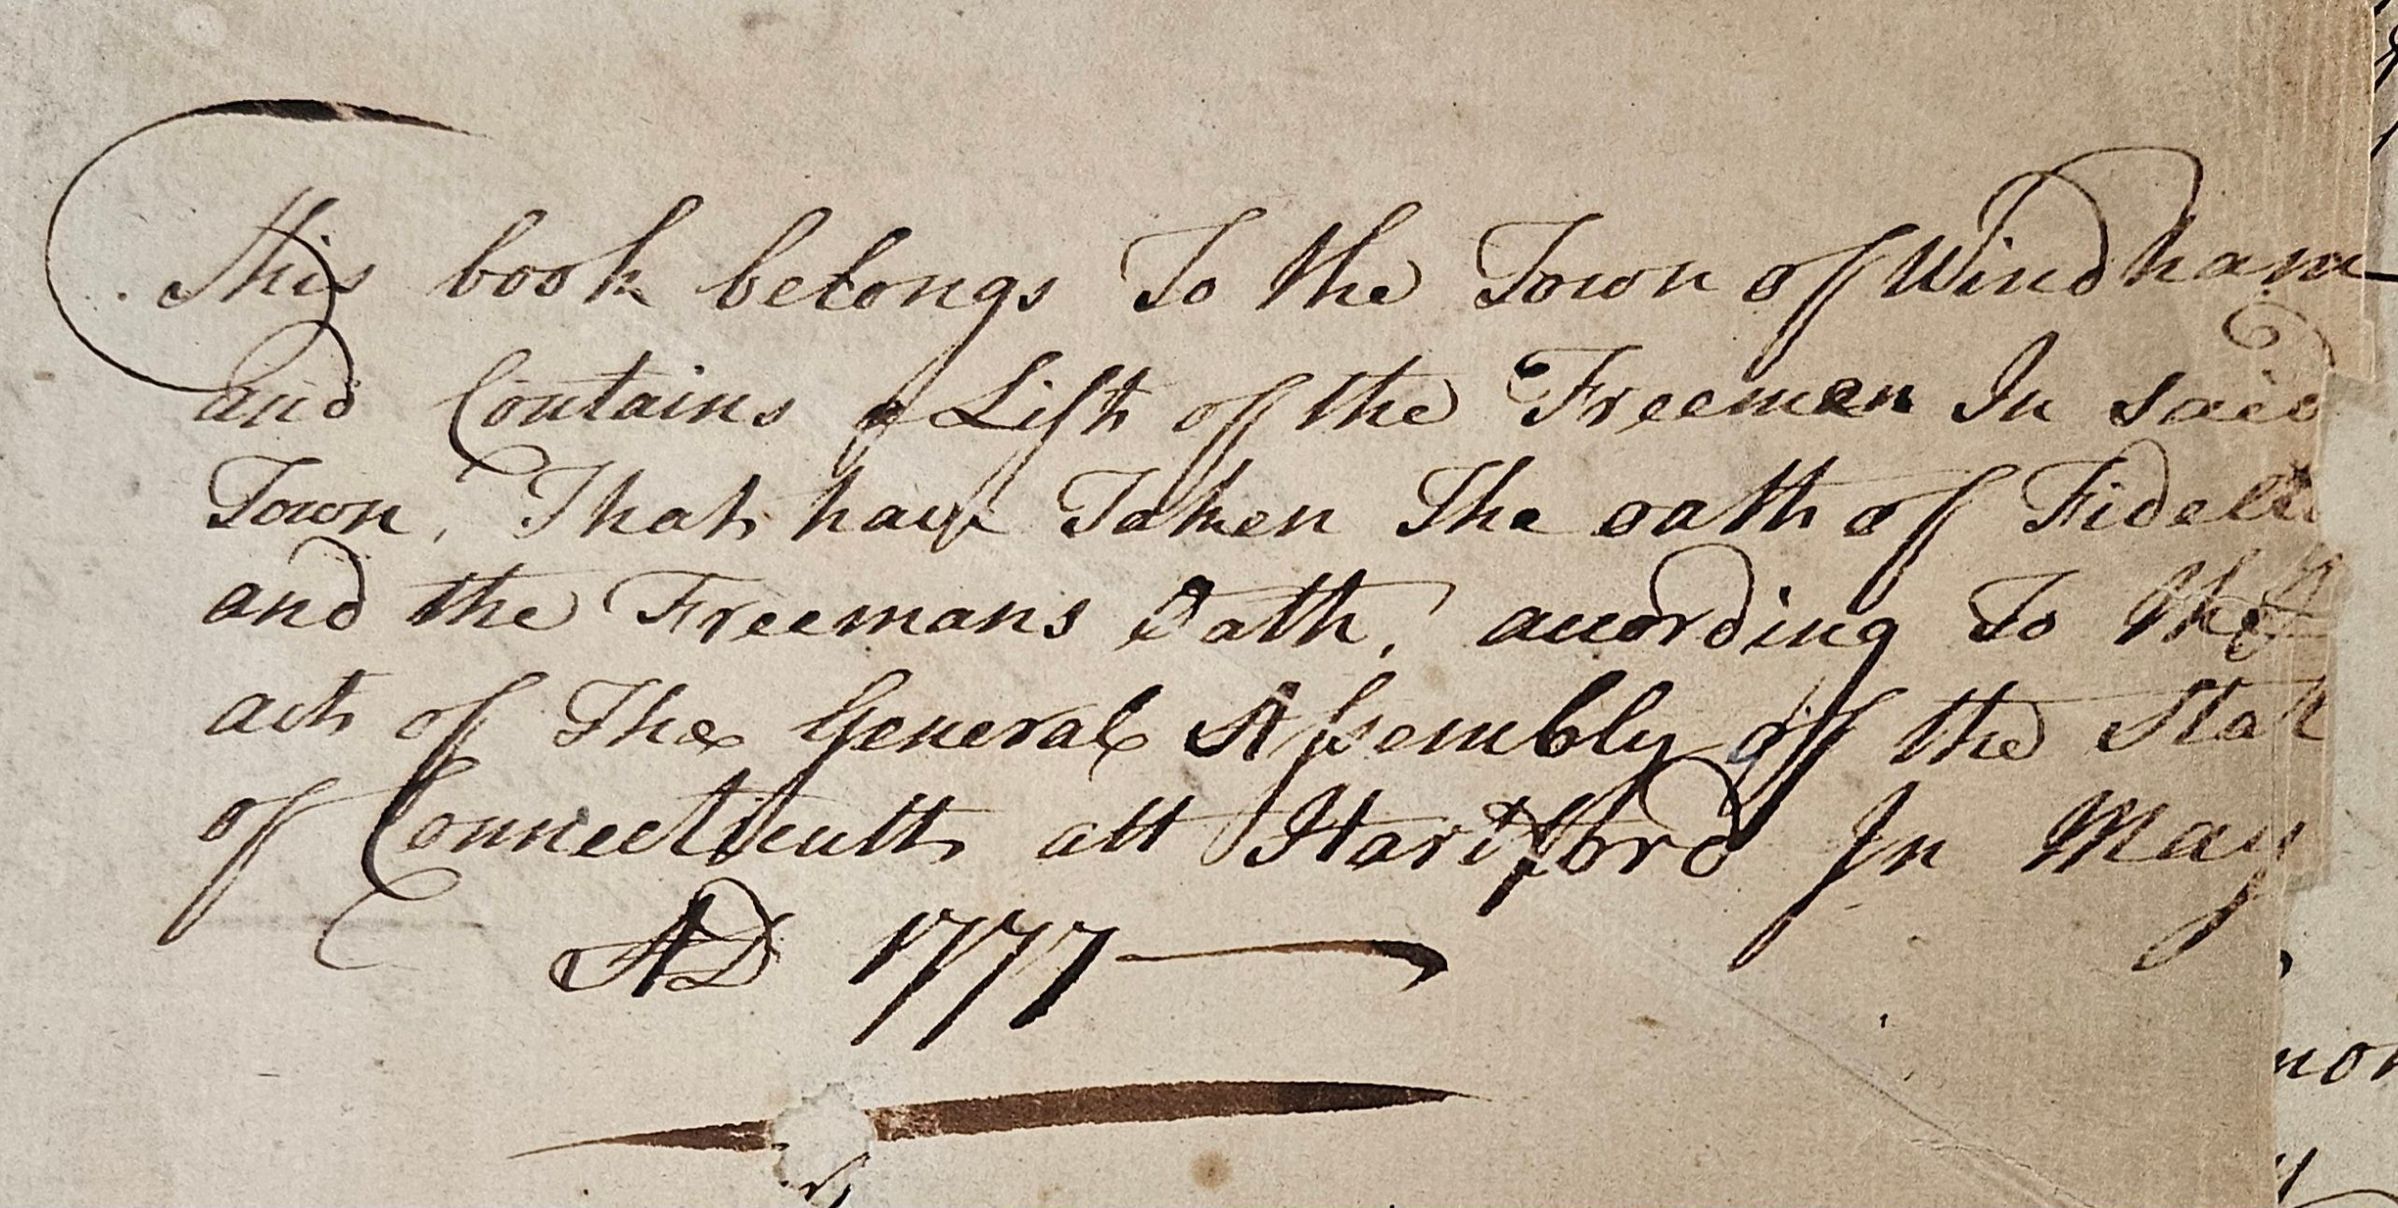 This book belongs To the Town of Windham
and Contains a List of the Freemen In said
Town, That have Taken The oath of Fideli
and the Freemans Oath, acording To the
act of The General Assembly of the Stat
of Connecticutt att Hartford In May
AD 1777